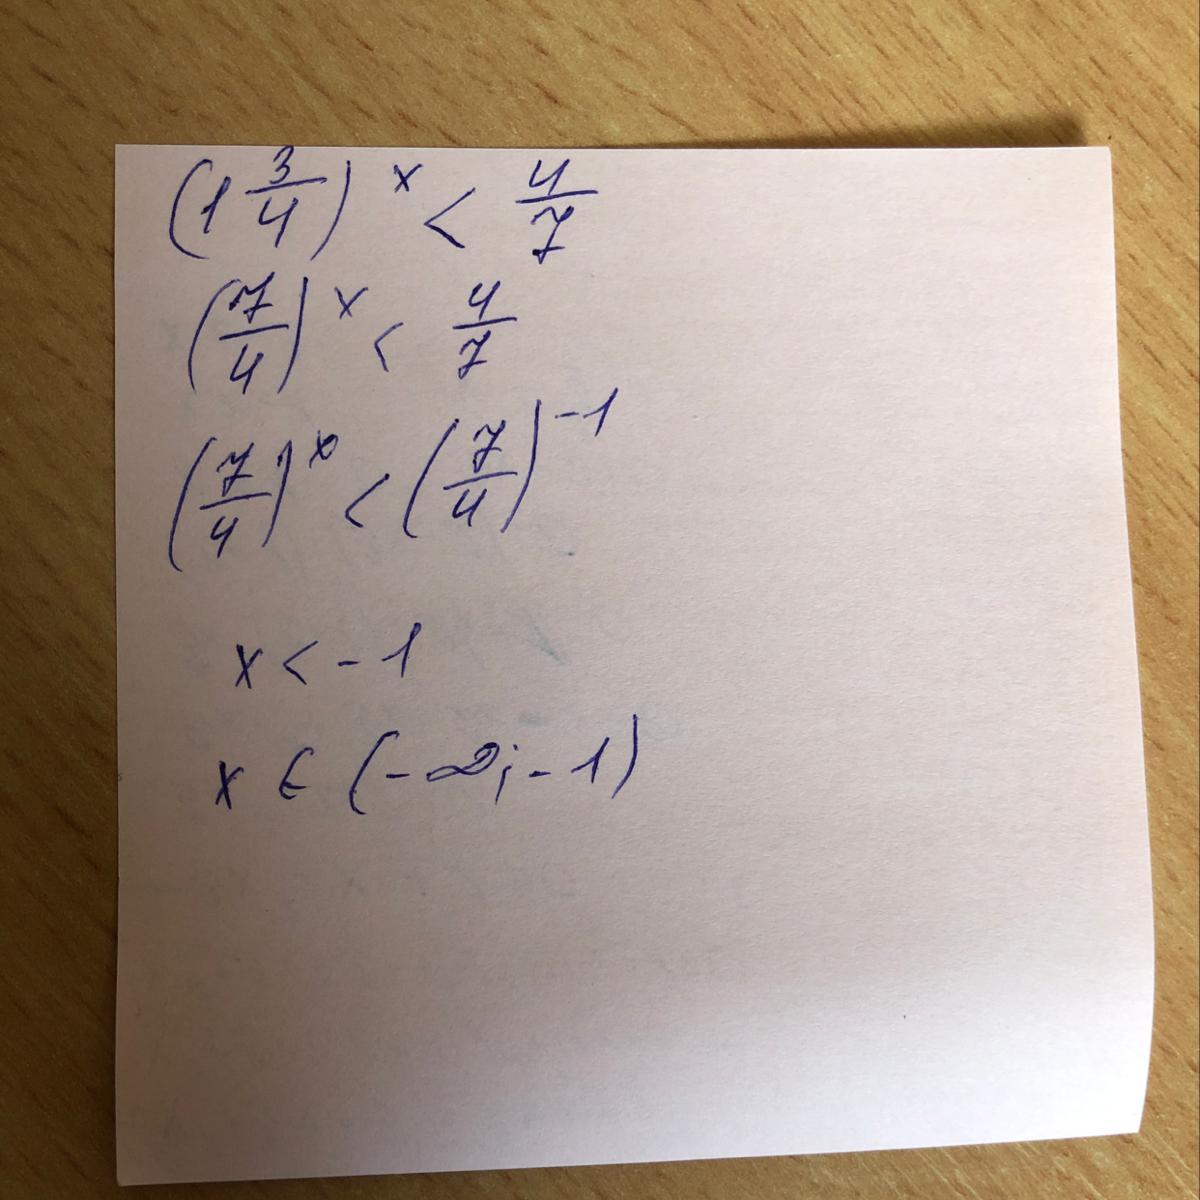 (1 3/4)^x < 4/7
(7/4)^x < 4/7
(7/4)^x < (7/4)^-1
x < -1
x ∈ (-∞; -1)